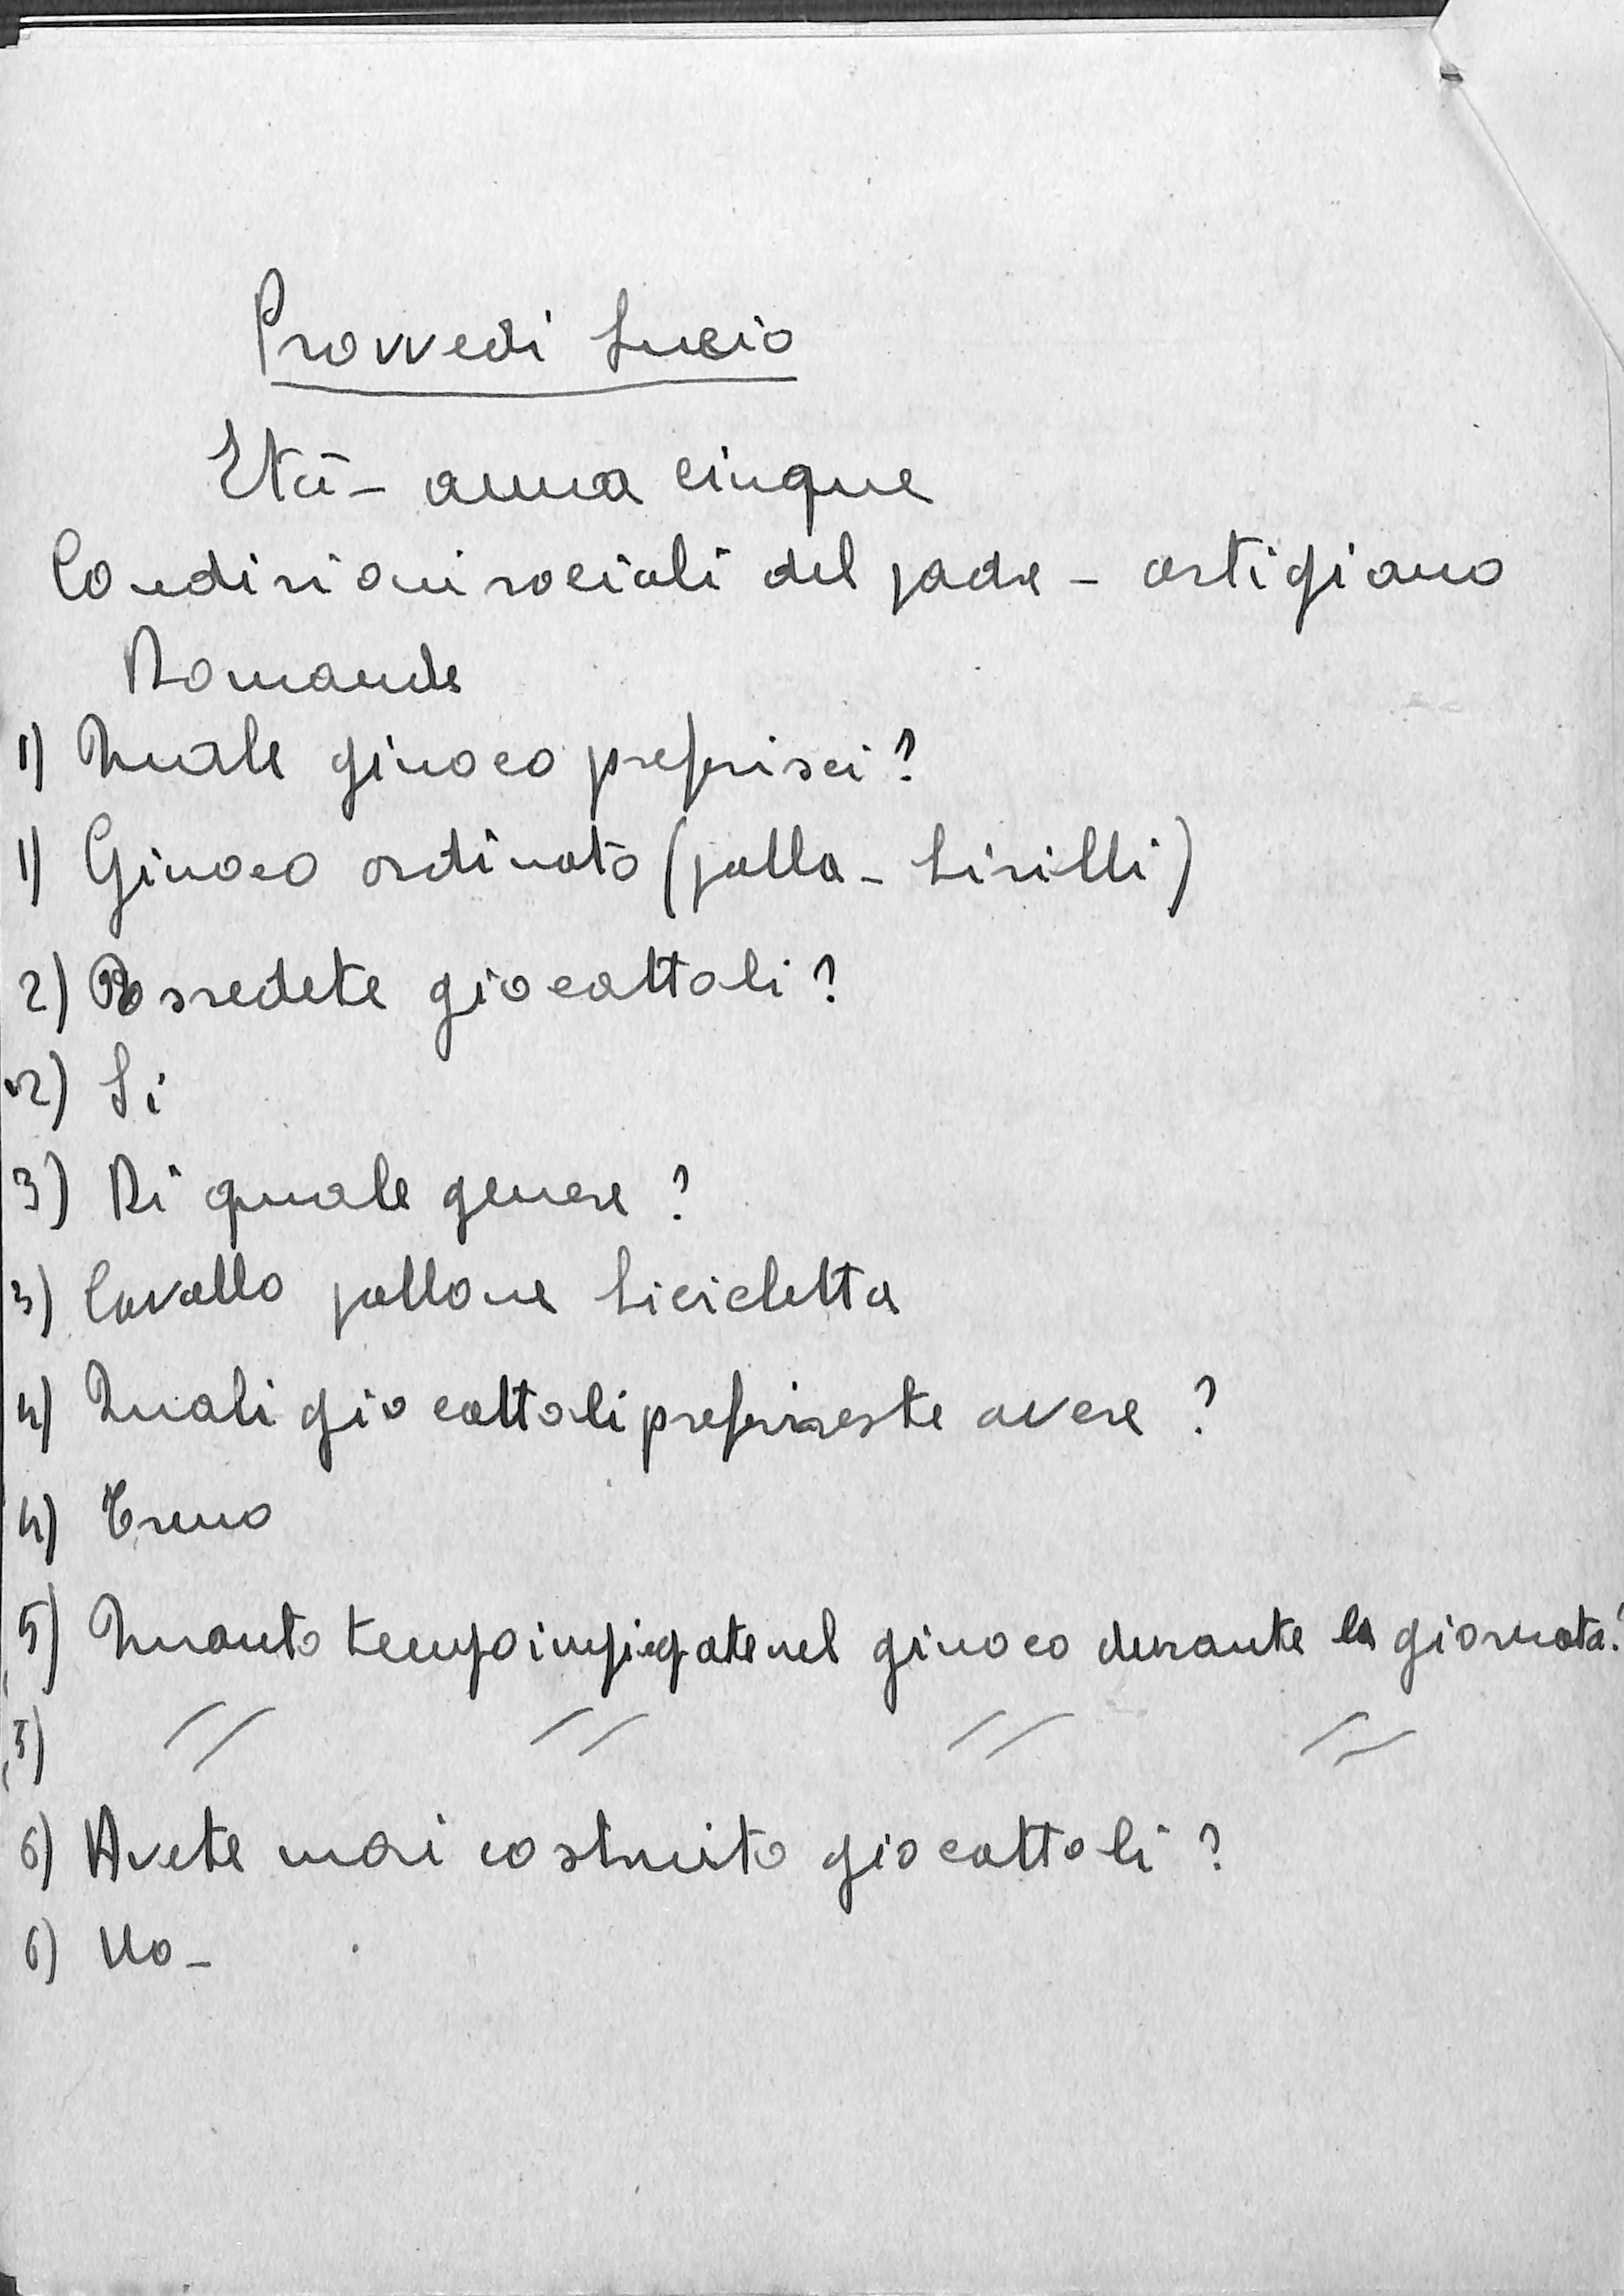 Provvedi Lucio
Età - anni cinque
Condizioni sociali del padre - artigiano
Domande
1) Quale giuoco preferisci?
1) Giuoco ordinato (palla - birilli)
2) Possedete giocattoli?
2) Si
3) Di quale genere?
3) Cavallo pallone bicicletta
4) Quali giocattoli preferireste avere?
4) Treno
5) Quanto tempo impiegate nel giuoco durante la giornata?
5) // // // //
6) Avete mai costruito giocattoli?
6) No -